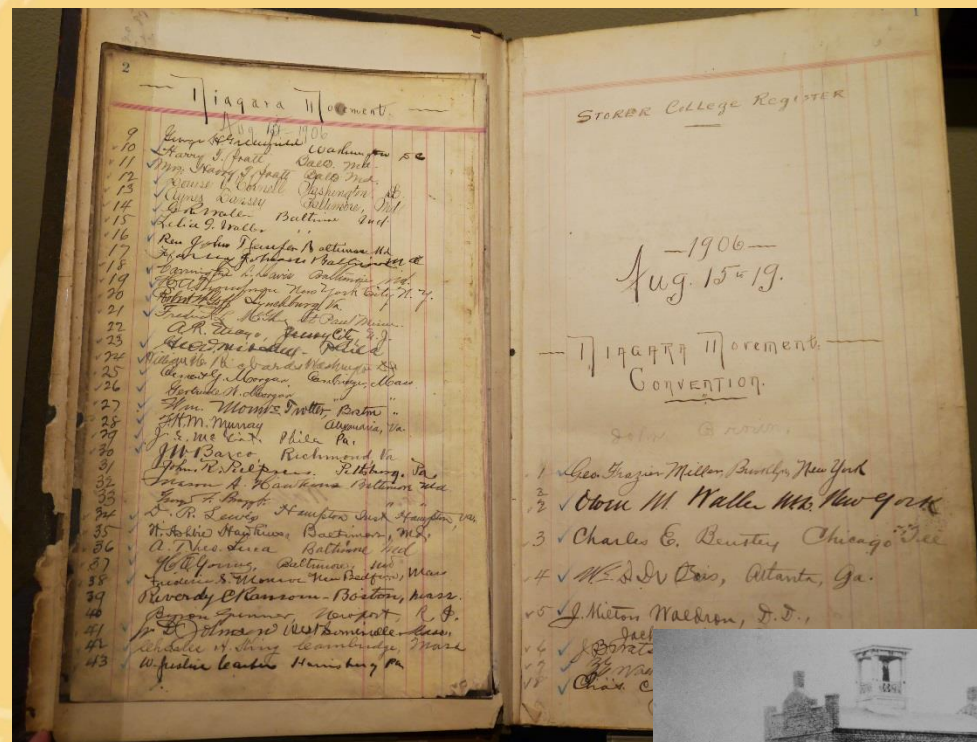 2
Niagara Movement
Aug 15 - 1906
9 George H Greenfield Washington DC
10 Harry T. Pratt Balto. Md.
11 Mrs Harry T. Pratt Balto Md.
12 Louise V. Cornell Washington
13 Agnes Baltimore, Md
14 G. R. Waller Baltimore Md
15 Lelia G. Waller " "
16 Rev John Baltimore Md
17 Harvey Johnson Baltimore Md
18 Davis Baltimore, Md.
19 New York City N. Y.
20 Lynchburg Va.
21 Frederick L. McGhee St Paul Minn.
22 A. R. Jersey City N. J.
23 Geo. W. Mitchell - Phila
24 Richards Washington
25 Clement G. Morgan, Cambridge, Mass
26 Gertrude W. Morgan "
27 Wm. Monroe Trotter, Boston "
28 F. H. M. Murray Alexandria, Va
29 J. Phila Pa.
30 J W Barco Richmond Va
31 John R. Pittsburg, Pa
32 Mason A. Hawkins Baltimore Md
33 George F. Bragg " "
34 D. R. Lewis Hampton Inst Hampton Va
35 W. Ashbie Hawkins Baltimore, Md.
36 A. Baltimore Md
37 H A Young, Baltimore, Md
38 Frederic S. Monroe New Bedford, Mass
39 Reverdy C Ransom - Boston, Mass.
40 Byron Gunner, Newport, R. I.
41 West Somerville Mass
42 H. Cambridge, Mass
43 W. Justin Carter Harrisburg Pa
1
Storer College Register
—1906—
Aug. 15 to 19.
Niagara Movement
Convention.
John Brown.
1 Geo. Frazier Miller, Brooklyn, New York
2 Owen M. Waller M.D. New York
3 Charles E. Bentley Chicago Ill
4 W. E. B. Du Bois, Atlanta, Ga.
5 J. Milton Waldron, D. D.,
Jack
6 J B
7
8 Chas C